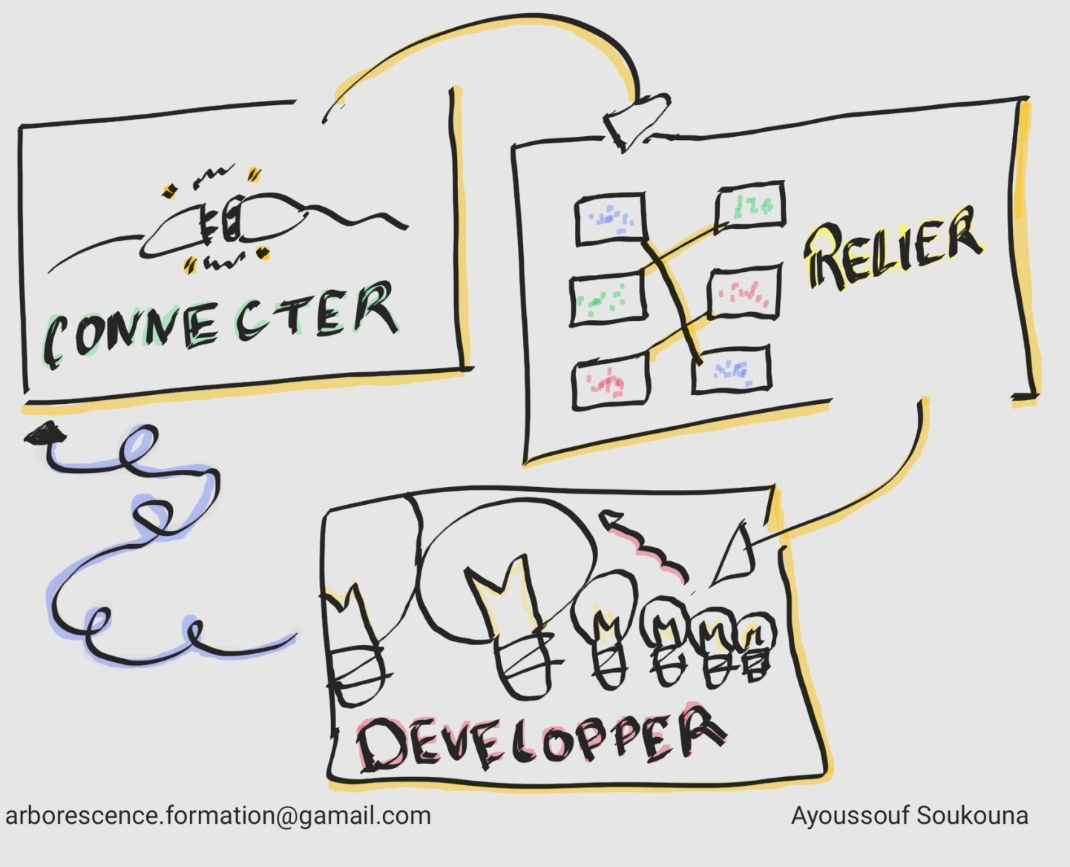 CONNECTER
RELIER
DEVELOPPER
arborescence.formation@gamail.com
Ayoussouf Soukouna